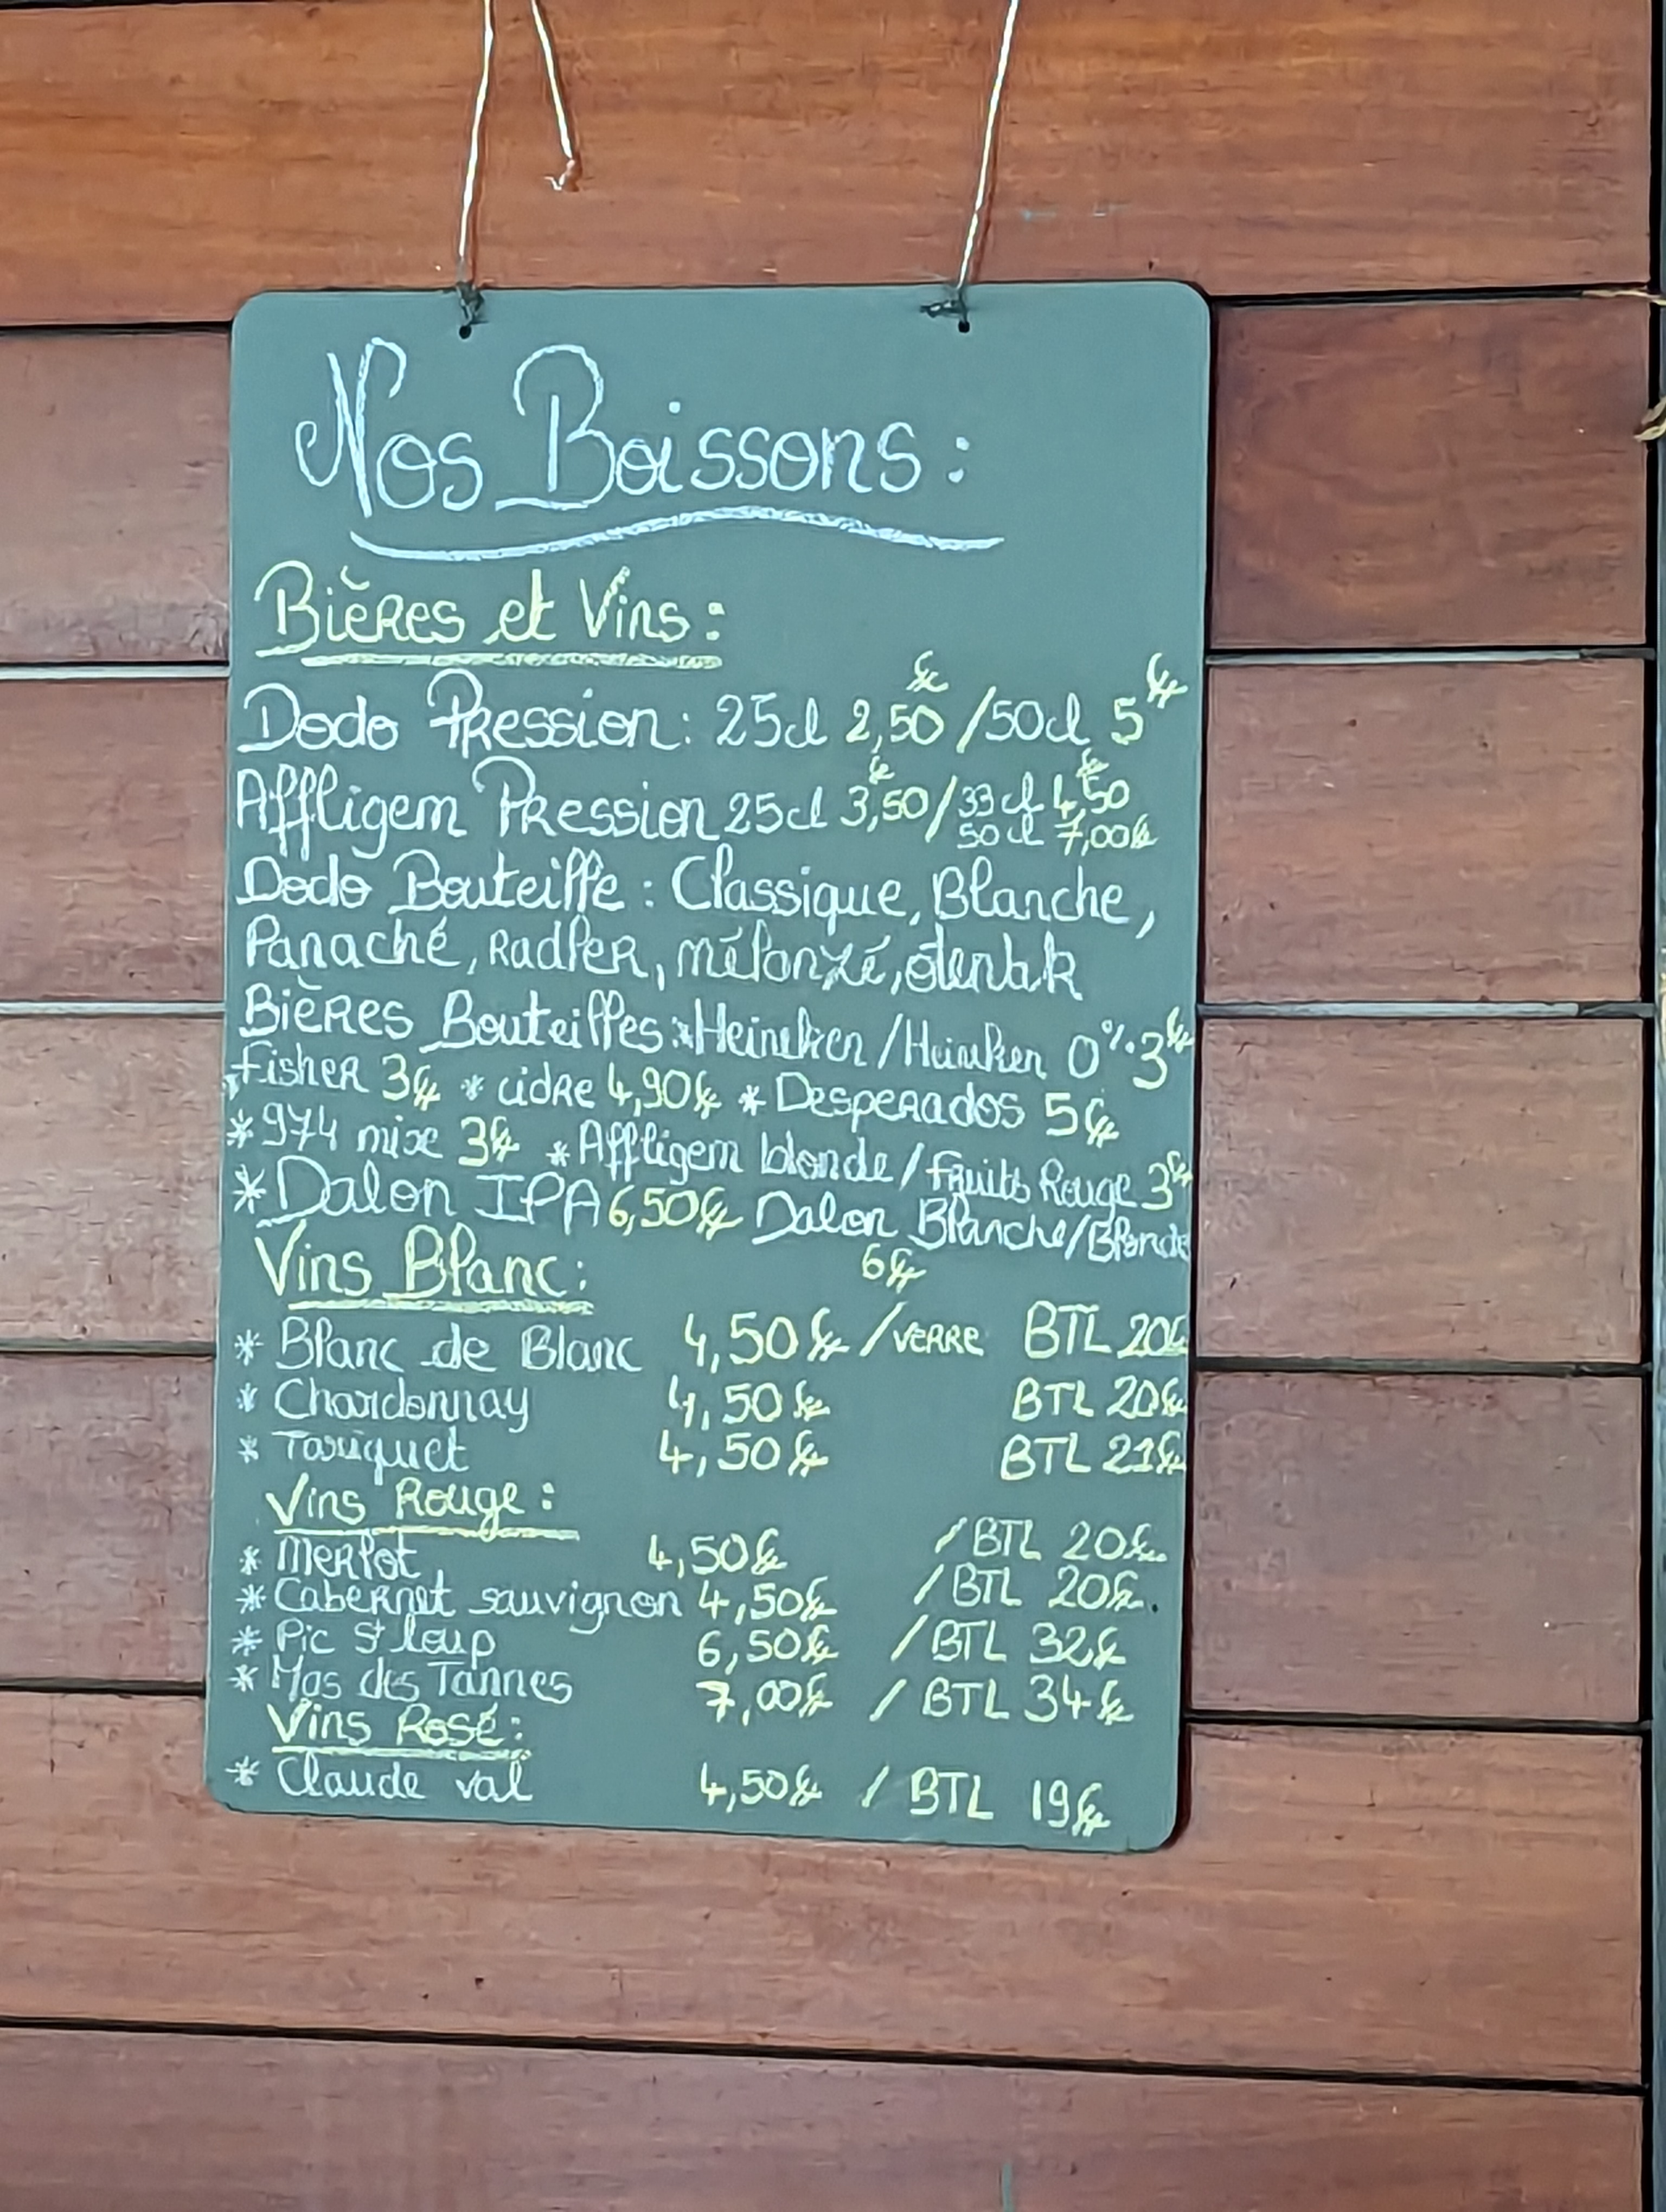 Nos Boissons :
Bières et Vins :
Dodo Pression : 25cl 2,50€ / 50cl 5€
Affligem Pression 25cl 3,50€ / 33cl 4,50€
50cl 7,00€
Dodo Bouteille : Classique, Blanche,
Panaché, Radler, mélonzé, ötentik
Bières Bouteilles : * Heineken / Heineken 0% 3€
* Fisher 3€ * cidre 4,90€ * Desperados 5€
* 974 mixe 3€ * Affligem blonde / Fruits Rouge 3€
* Dalon IPA 6,50€ Dalon Blanche/Blonde
6€
Vins Blanc :
* Blanc de Blanc 4,50€ / verre BTL 20€
* Chardonnay 4,50€ BTL 20€
* Tariquet 4,50€ BTL 21€
Vins Rouge :
* Merlot 4,50€ / BTL 20€
* Cabernet sauvignon 4,50€ / BTL 20€
* Pic St loup 6,50€ / BTL 32€
* Mas des Tannes 7,00€ / BTL 34€
Vins Rosé :
* Claude val 4,50€ / BTL 19€